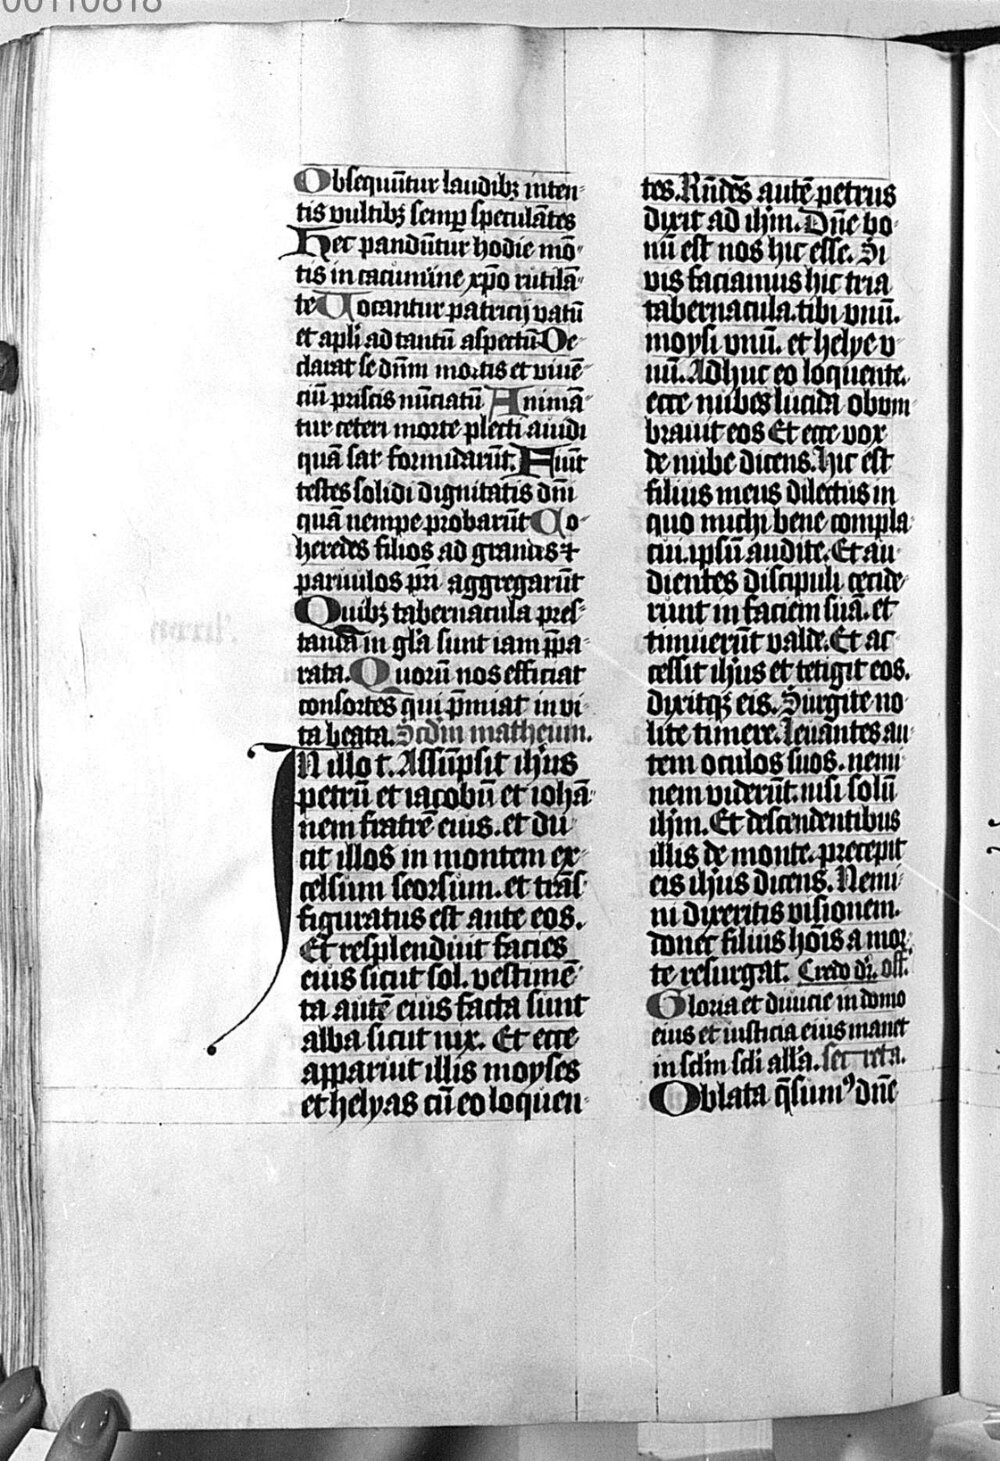 00110818
Obsequūtur laudibꝫ inten-
tis vultibꝫ semꝑ speculātes
Hec pandūtur hodie mō-
tis in cacumine xp̄o rutilā-
te Uocantur patricij vatū
et apl̓i ad tantū aspectū De-
clarat se dn̄m mortis et viuē-
ciū priscis nūciatū Animā-
tur ceteri morte plecti audi
quā sat formidarūt. Fiūt
testes solidi dignitatis dn̄i
quā nempe probarūt Co-
heredes filios ad grandes ⁊
paruulos pr̄i aggregarūt
Quibꝫ tabernacula pres-
tanda in gl̓a sunt iam p̄pa-
rata. Quorū nos efficiat
consortes qui p̄miat in vi-
ta beata. Scd̄m matheum.
IN illo t. Assūpsit ih̄us
petrū et iacobū et iohā-
nem fratrē eius. et du-
cit illos in montem ex-
celsum seorsum. et trās-
figuratus est ante eos.
Et resplenduit facies
eius sicut sol. vestimē-
ta autē eius facta sunt
alba sicut nix. Et ecce
apparuit illis moyses
et helyas cū eo loquen-
tes. Rn̄dēs autē petrus
dixit ad ih̄m. Dn̄e bo-
nū est nos hic esse. Si
vis faciamus hic tria
tabernacula. tibi vnū.
moysi vnū. et helye v-
nū. Adhuc eo loquente.
ecce nubes lucida obum-
brauit eos Et ecce vox
de nube dicens. Hic est
filius meus dilectus in
quo michi bene compla-
cui. ipsū audite. Et au-
dientes discipuli cecide-
runt in faciem suā. et
timuerūt valde. Et ac-
cessit ih̄us et tetigit eos.
dixitqꝫ eis. Surgite no-
lite timere. Leuantes au-
tem oculos suos. nemi-
nem viderūt. nisi solū
ih̄m. Et descendentibus
illis de monte. precepit
eis ih̄us dicens. Nemi-
ni dixeritis visionem.
donec filius hoīs a mor-
te resurgat. Credo dr̄. off.
Gloria et diuicie in domo
eius et iusticia eius manet
in sclm̄ scl̄i all̓a. secreta.
Oblata q̄sumꝰ dn̄e